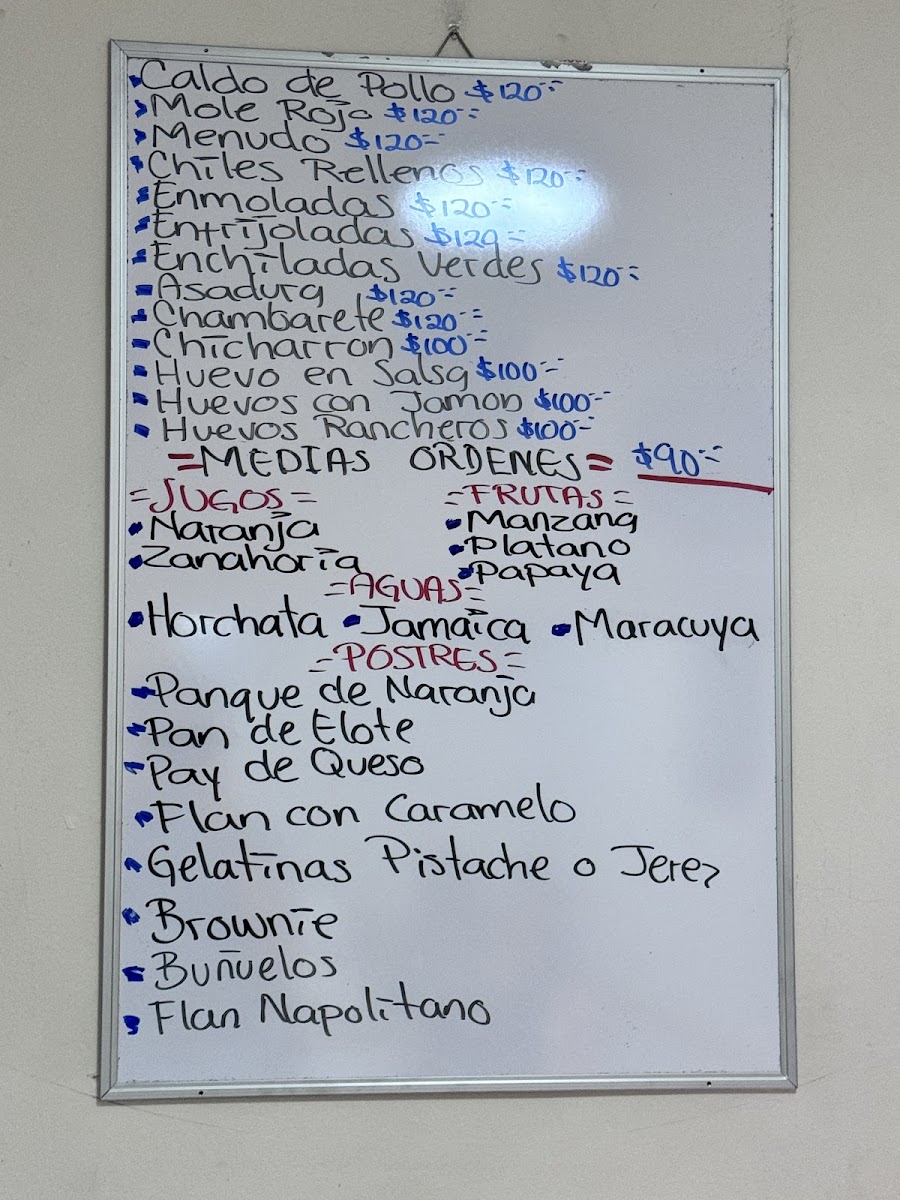 Caldo de Pollo $120=
Mole Rojo $120=
Menudo $120=
Chiles Rellenos $120=
Enmoladas $120=
Enfrijoladas $120=
Enchiladas Verdes $120=
Asadura $120=
Chambarete $120=
Chicharron $100=
Huevo en Salsa $100=
Huevos con Jamon $100=
Huevos Rancheros $100=
=MEDIAS ORDENES= $90=
=JUGOS= =FRUTAS=
Naranja Manzana
Zanahoria Platano
Papaya
=AGUAS=
Horchata Jamaica Maracuya
=POSTRES=
Panque de Naranja
Pan de Elote
Pay de Queso
Flan con Caramelo
Gelatinas Pistache o Jerez
Brownie
Buñuelos
Flan Napolitano